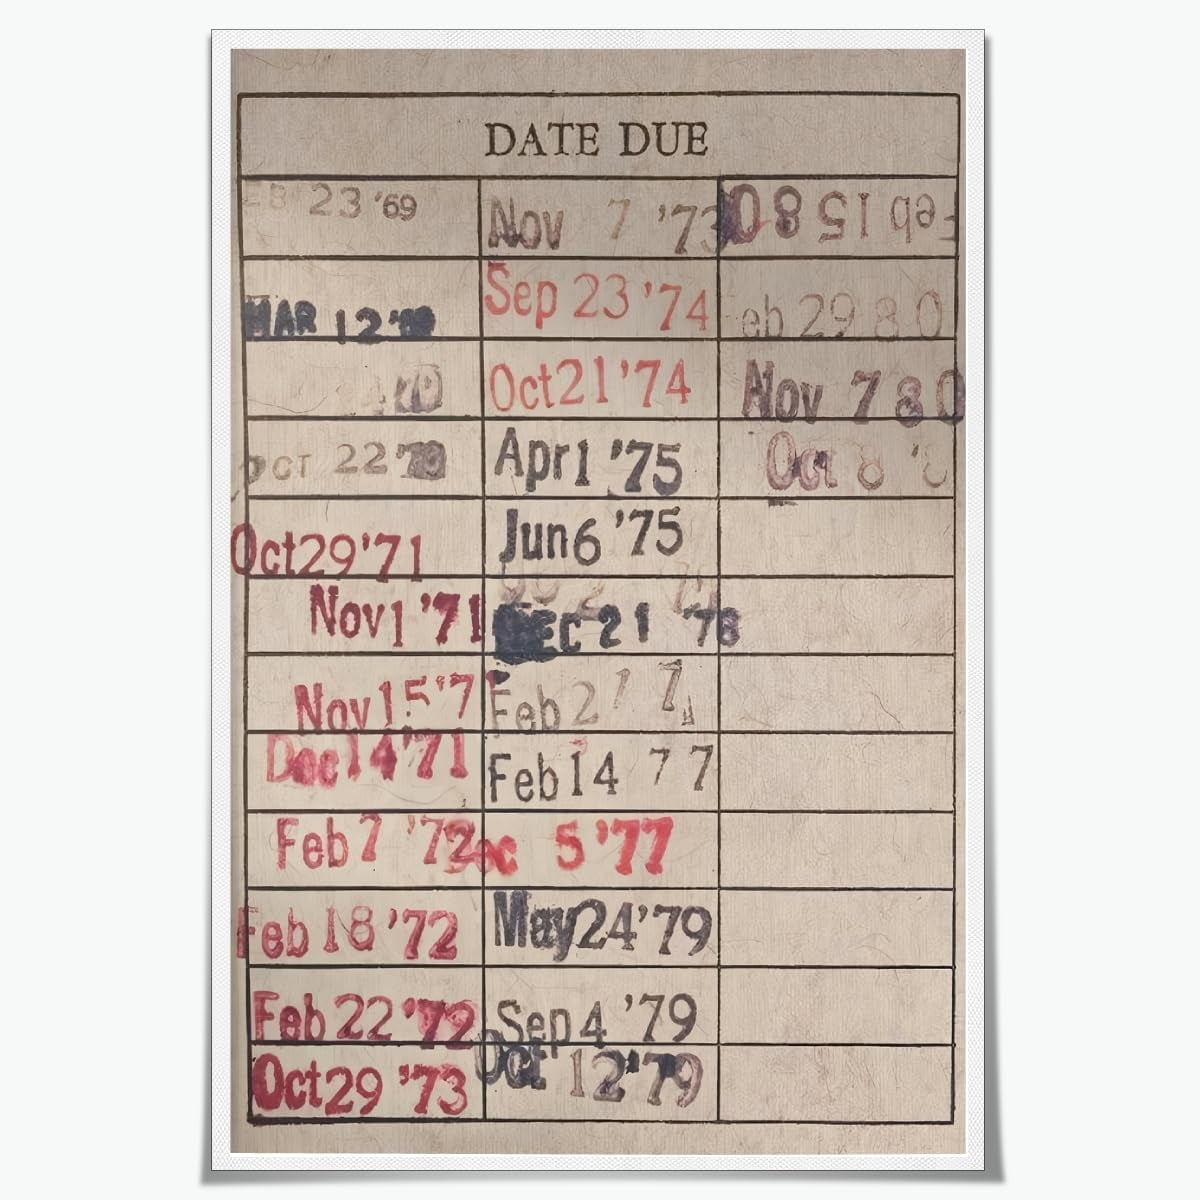 DATE DUE
23 '69
MAR 12
OCT 22
Oct 29 '71
Nov 1 '71
Nov 15 '7
Dec 14 '71
Feb 7 '72
Feb 18 '72
Feb 22 '72
Oct 29 '73
Nov 7 '73
Sep 23 '74
Oct 21 '74
Apr 1 '75
Jun 6 '75
DEC 21 '76
Feb 2
Feb 14 77
5 '77
May 24 '79
Sep 4 '79
Oct 12 '79
Feb 15 80
eb 29 80
Nov 7 80
Oct 8